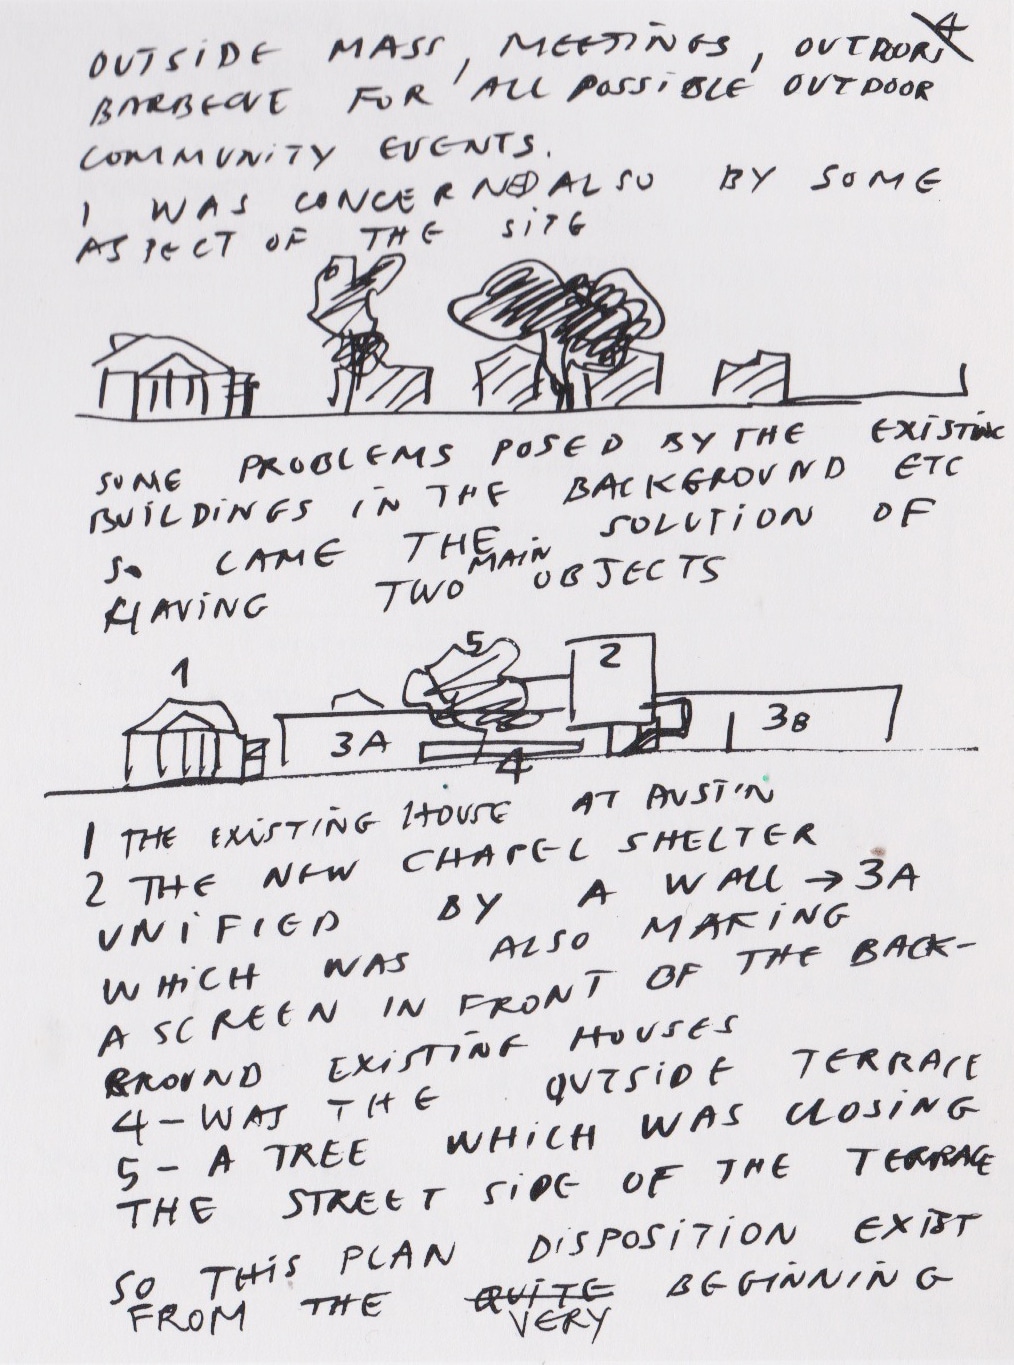 4
OUTSIDE MASS, MEETINGS, OUTDOOR
BARBECUE FOR ALL POSSIBLE OUTDOOR
COMMUNITY EVENTS.
I WAS CONCERNED ALSO BY SOME
ASPECT OF THE SITE
SOME PROBLEMS POSED BY THE EXISTING
BUILDINGS IN THE BACKGROUND ETC
SO CAME THE SOLUTION OF
HAVING TWO MAIN OBJECTS
1 5 2
3A 4 3B
1 THE EXISTING HOUSE AT AUSTIN
2 THE NEW CHAPEL SHELTER
UNIFIED BY A WALL → 3A
WHICH WAS ALSO MAKING
A SCREEN IN FRONT OF THE BACK-
GROUND EXISTING HOUSES
4 - WAS THE OUTSIDE TERRACE
5 - A TREE WHICH WAS CLOSING
THE STREET SIDE OF THE TERRACE
SO THIS PLAN DISPOSITION EXIST
FROM THE QUITE VERY BEGINNING